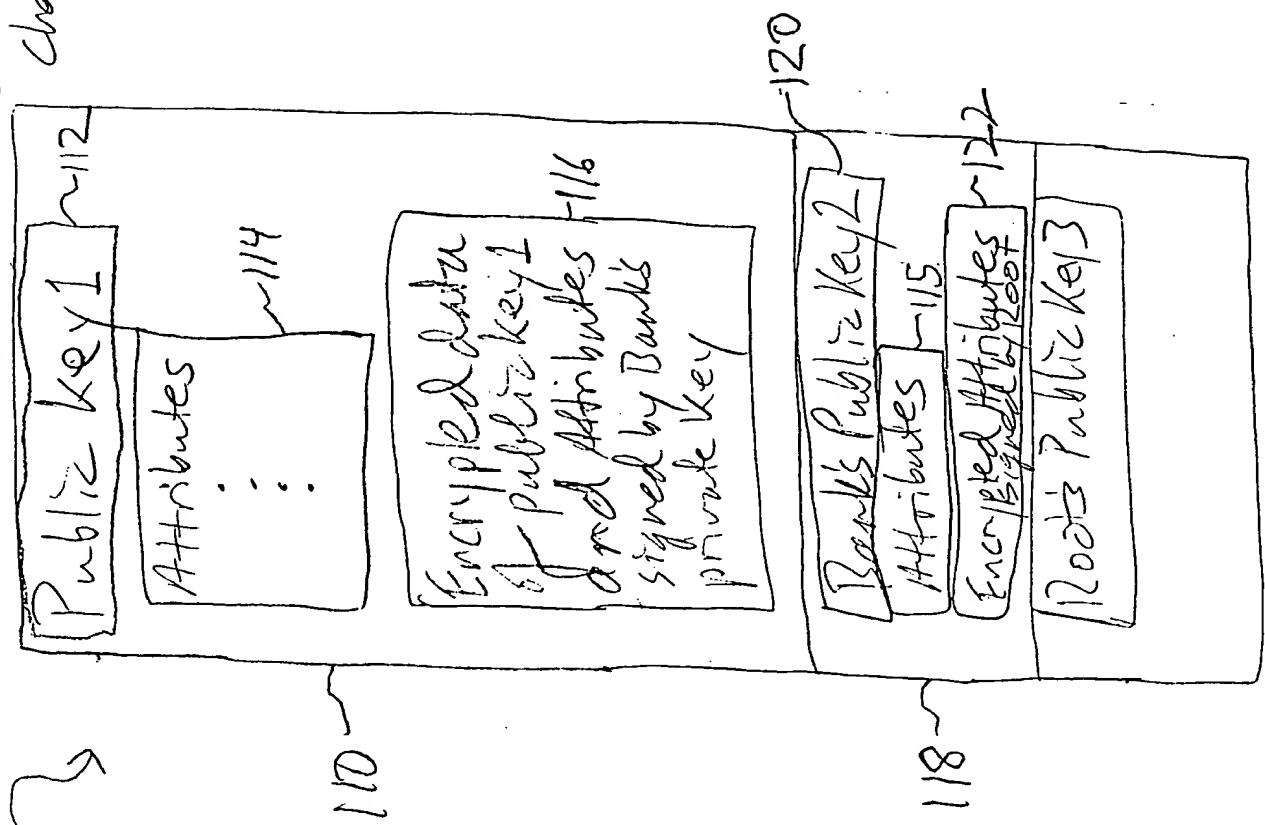 Public Key 1
~112
Attributes
~114
Encrypted data
of Public Key 1
and Attributes
signed by Bank's
private Key
116
110
Bank's Public Key 2
120
Attributes
~115
Encrypted Attributes
signed by
~122
118
Root's Public Key 3